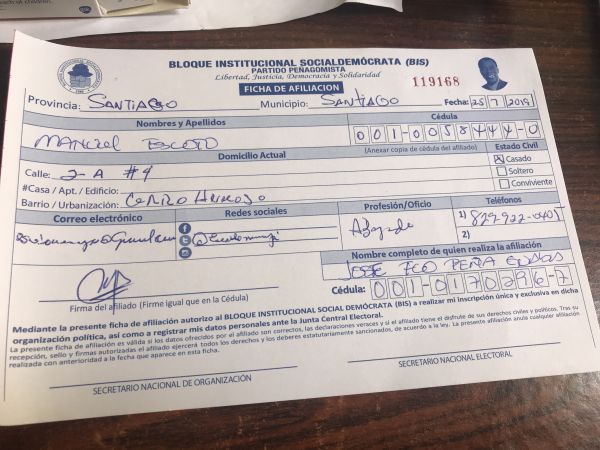 BLOQUE INSTITUCIONAL SOCIALDEMÓCRATA (BIS)
PARTIDO PEÑAGOMISTA
Libertad, Justicia, Democracia y Solidaridad
FICHA DE AFILIACION
119168
Provincia: SANTIAGO Municipio: SANTIAGO Fecha: 25 7 2019
Nombres y Apellidos Cédula
MANUEL ESCOTO 001-0058444-0
Domicilio Actual (Anexar copia de cédula del afiliado) Estado Civil
Calle: 2-A #4
X Casado
#Casa / Apt. / Edificio:
Soltero
Barrio / Urbanización: CERRO HERMOSO
Conviviente
Correo electrónico Redes sociales Profesión/Oficio Teléfonos
Abogado
1) 829-922-0405
2)
Nombre completo de quien realiza la afiliación
JOSE FCO PEÑA
Cédula: 001-0170296-7
Firma del afiliado (Firme igual que en la Cédula)
Mediante la presente ficha de afiliación autorizo al BLOQUE INSTITUCIONAL SOCIAL DEMÓCRATA (BIS) a realizar mi inscripción única y exclusiva en dicha
organización política, así como a registrar mis datos personales ante la Junta Central Electoral.
La presente ficha de afiliación es válida si los datos ofrecidos por el afiliado son correctos, las declaraciones veraces y si el afiliado tiene el disfrute de sus derechos civiles y políticos. Tras su
recepción, sello y firmas autorizadas el afiliado ejercerá todos los derechos y los deberes estatutariamente sancionados, de acuerdo a la ley. La presente afiliación anula cualquier afiliación
realizada con anterioridad a la fecha que aparece en esta ficha.
SECRETARIO NACIONAL DE ORGANIZACIÓN
SECRETARIO NACIONAL ELECTORAL